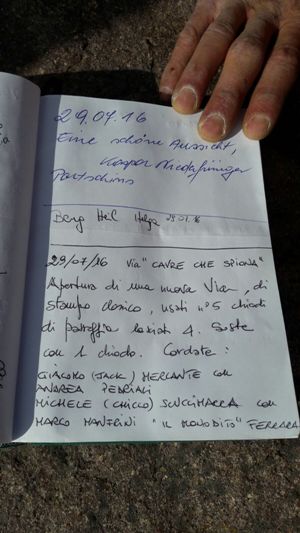 29.07.16
Eine schöne Aussicht,
Kaspar
Partschins
Berg Heil Helga 29.07.16
29/07/16 Via "CAVRE CHE SPIONA"
Apertura di una nuova Via, di
stampo classico, usati n° 5 chiodi
di passaggio lasciati 4. Soste
con 1 chiodo. Cordate:
GIACOMO (JACK) MERCANTE con
ANDREA PEDRIALI
MICHELE (CHICCO) SCUCCIMARRA con
MARCO MANFRINI "IL MONODITO" FERRARA